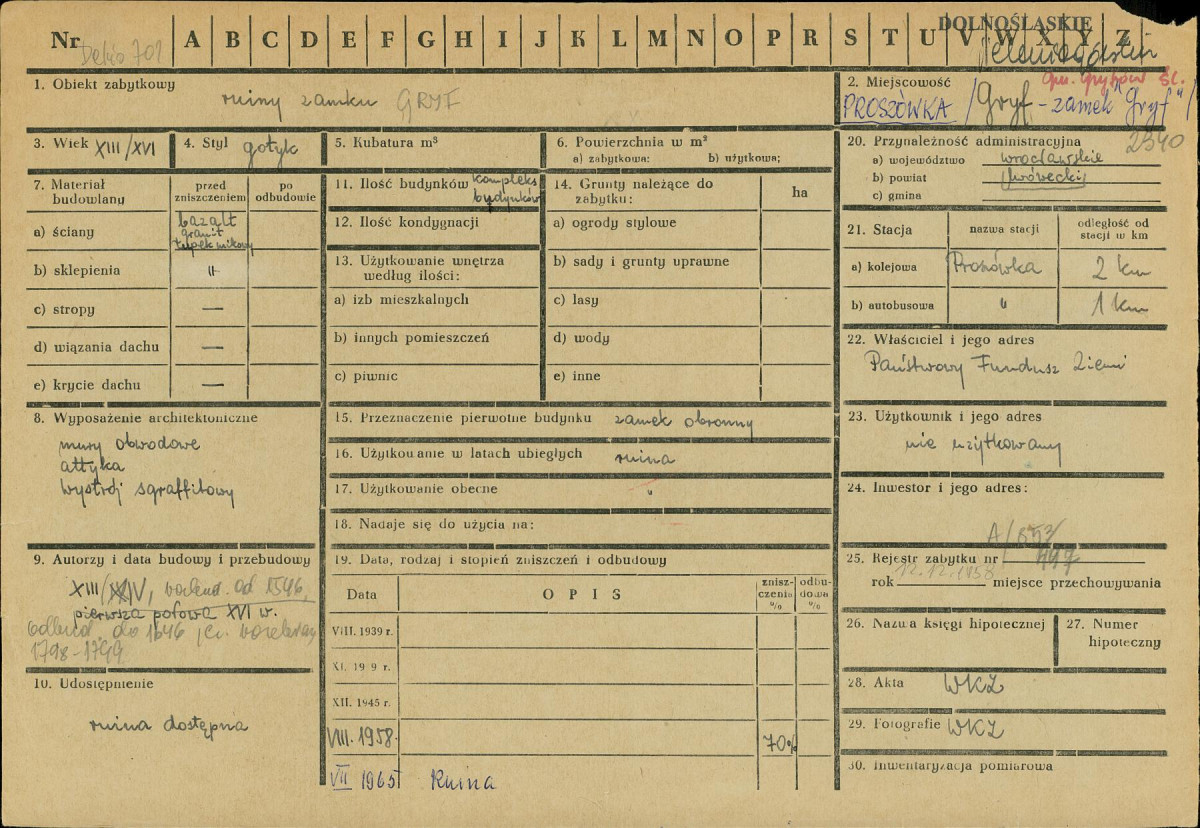 DOLNOŚLĄSKIE
Nr Dehio 701 A B C D E F G H I J K L M N O P R S T U V W X Y Z
1. Obiekt zabytkowy
ruiny zamku GRYF
2. Miejscowość
gm. Gryfów Śl.
PROSZÓWKA / Gryf - zamek "Gryf" /
3. Wiek XIII/XVI
4. Styl gotyk
5. Kubatura m³
6. Powierzchnia w m²
a) zabytkowa: b) użytkowa;
7. Materiał budowlany
przed zniszczeniem
po odbudowie
a) ściany
bazalt
granit
łupek mikowy
b) sklepienia "
c) stropy —
d) wiązania dachu —
e) krycie dachu —
8. Wyposażenie architektoniczne
mury obwodowe
attyka
wystrój sgraffitowy
9. Autorzy i data budowy i przebudowy
XIII/XIV, od 1546,
pierwsza połowa XVI w.
odbud. do 1646
1798-1799
10. Udostępnienie
ruina dostępna
11. Ilość budynków kompleks
budynków
12. Ilość kondygnacji
13. Użytkowanie wnętrza
według ilości:
a) izb mieszkalnych
b) innych pomieszczeń
c) piwnic
14. Grunty należące do
zabytku: ha
a) ogrody stylowe
b) sady i grunty uprawne
c) lasy
d) wody
e) inne
15. Przeznaczenie pierwotne budynku zamek obronny
16. Użytkowanie w latach ubiegłych ruina
17. Użytkowanie obecne "
18. Nadaje się do użycia na:
19. Data, rodzaj i stopień zniszczeń i odbudowy
Data OPIS zniszczenia % odbudowa %
VIII. 1939 r.
XI. 19 9 r.
XII. 1945 r.
VIII. 1958. 70%
VII 1965 Ruina
20. Przynależność administracyjna 2340
a) województwo wrocławskie
b) powiat lwówecki
c) gmina
21. Stacja nazwa stacji odległość od stacji w km
a) kolejowa Proszówka 2 km
b) autobusowa " 1 km
22. Właściciel i jego adres
Państwowy Fundusz Ziemi
23. Użytkownik i jego adres
nie użytkowany
24. Inwestor i jego adres:
25. Rejestr zabytku nr
rok 12.12.1958 miejsce przechowywania
26. Nazwa księgi hipotecznej
27. Numer
hipoteczny
28. Akta WKZ
29. Fotografie WKZ
30. Inwentaryzacja pomiarowa